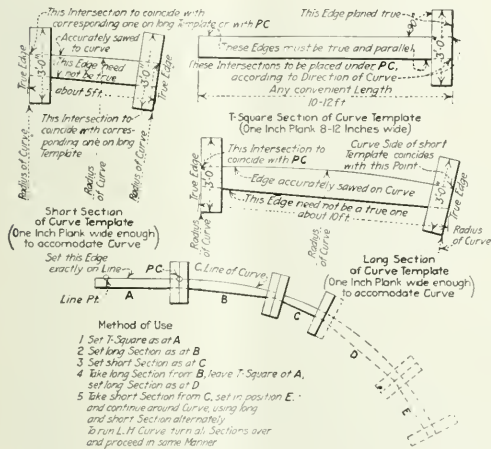 This Intersection to coincide with
corresponding one on long Template or with PC
Accurately sawed
to curve
This Edge need
not be true
about 5ft.
3'-0"
True Edge
True Edge
This Intersection to
coincide with corres-
ponding one on long
Template
Radius of Curve
Radius
of Curve
Radius of Curve
Short Section
of Curve Template
(One Inch Plank wide enough
to accomodate Curve)
This Edge planed true
90°
These Edges must be true and parallel
These Intersections to be placed under PC,
according to Direction of Curve
Any convenient Length
10-12ft
3'-0"
T-Square Section of Curve Template
(One Inch Plank 8-12 Inches wide)
This Intersection to
coincide with PC
Curve Side of short
Template coincides
with this Point
Edge accurately sawed on Curve
This Edge need not be a true one
about 10ft.
True Edge
3'-0"
3'-0"
True Edge
Radius
of Curve
Radius
of Curve
Radius
of Curve
Long Section
of Curve Template
(One Inch Plank wide enough
to accomodate Curve)
Set this Edge
exactly on Line
PC
C.Line of Curve
Line Pt.
A
B
C
D
E
Method of Use
1 Set T-Square as at A
2 Set long Section as at B
3 Set short Section as at C
4 Take long Section from B, leave T-Square at A,
set long Section as at D
5 Take short Section from C, set in position E.
and continue around Curve, using long
and short Section alternately
To run L.H Curve turn all Sections over
and proceed in same Manner